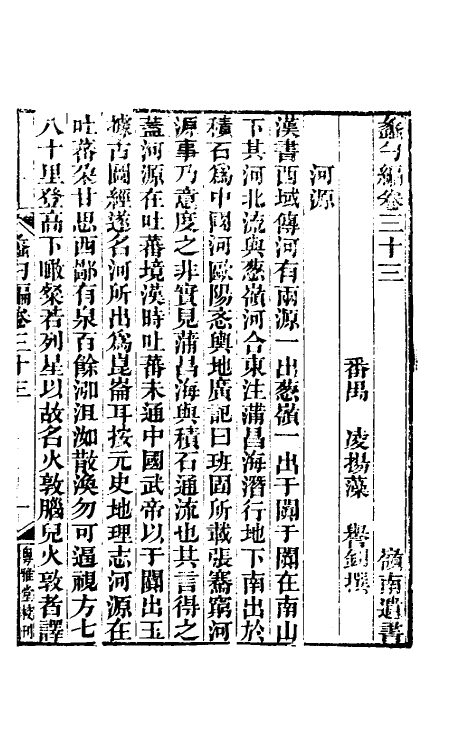 蠡勺編卷三十三
嶺南遺書
番禺 凌揚藻 譽釗撰
河源
漢書西域傳河有兩源一出葱嶺一出于闐于闐在南山
下其河北流與葱嶺河合東注蒲昌海潛行地下南出於
積石爲中國河歐陽忞輿地廣記曰班固所載張騫窮河
源事乃意度之非實見蒲昌海與積石通流也其言得之
蓋河源在吐蕃境漢時吐蕃未通中國武帝以于闐出玉
據古圖經遂名河所出爲崑崙耳按元史地理志河源在
吐蕃朶甘思西鄙有泉百餘泓沮洳散渙勿可逼視方七
八十里登高下瞰粲若列星以故名火敦腦兒火敦者譯
蠡勺編卷三十三
一
粤雅堂校刊